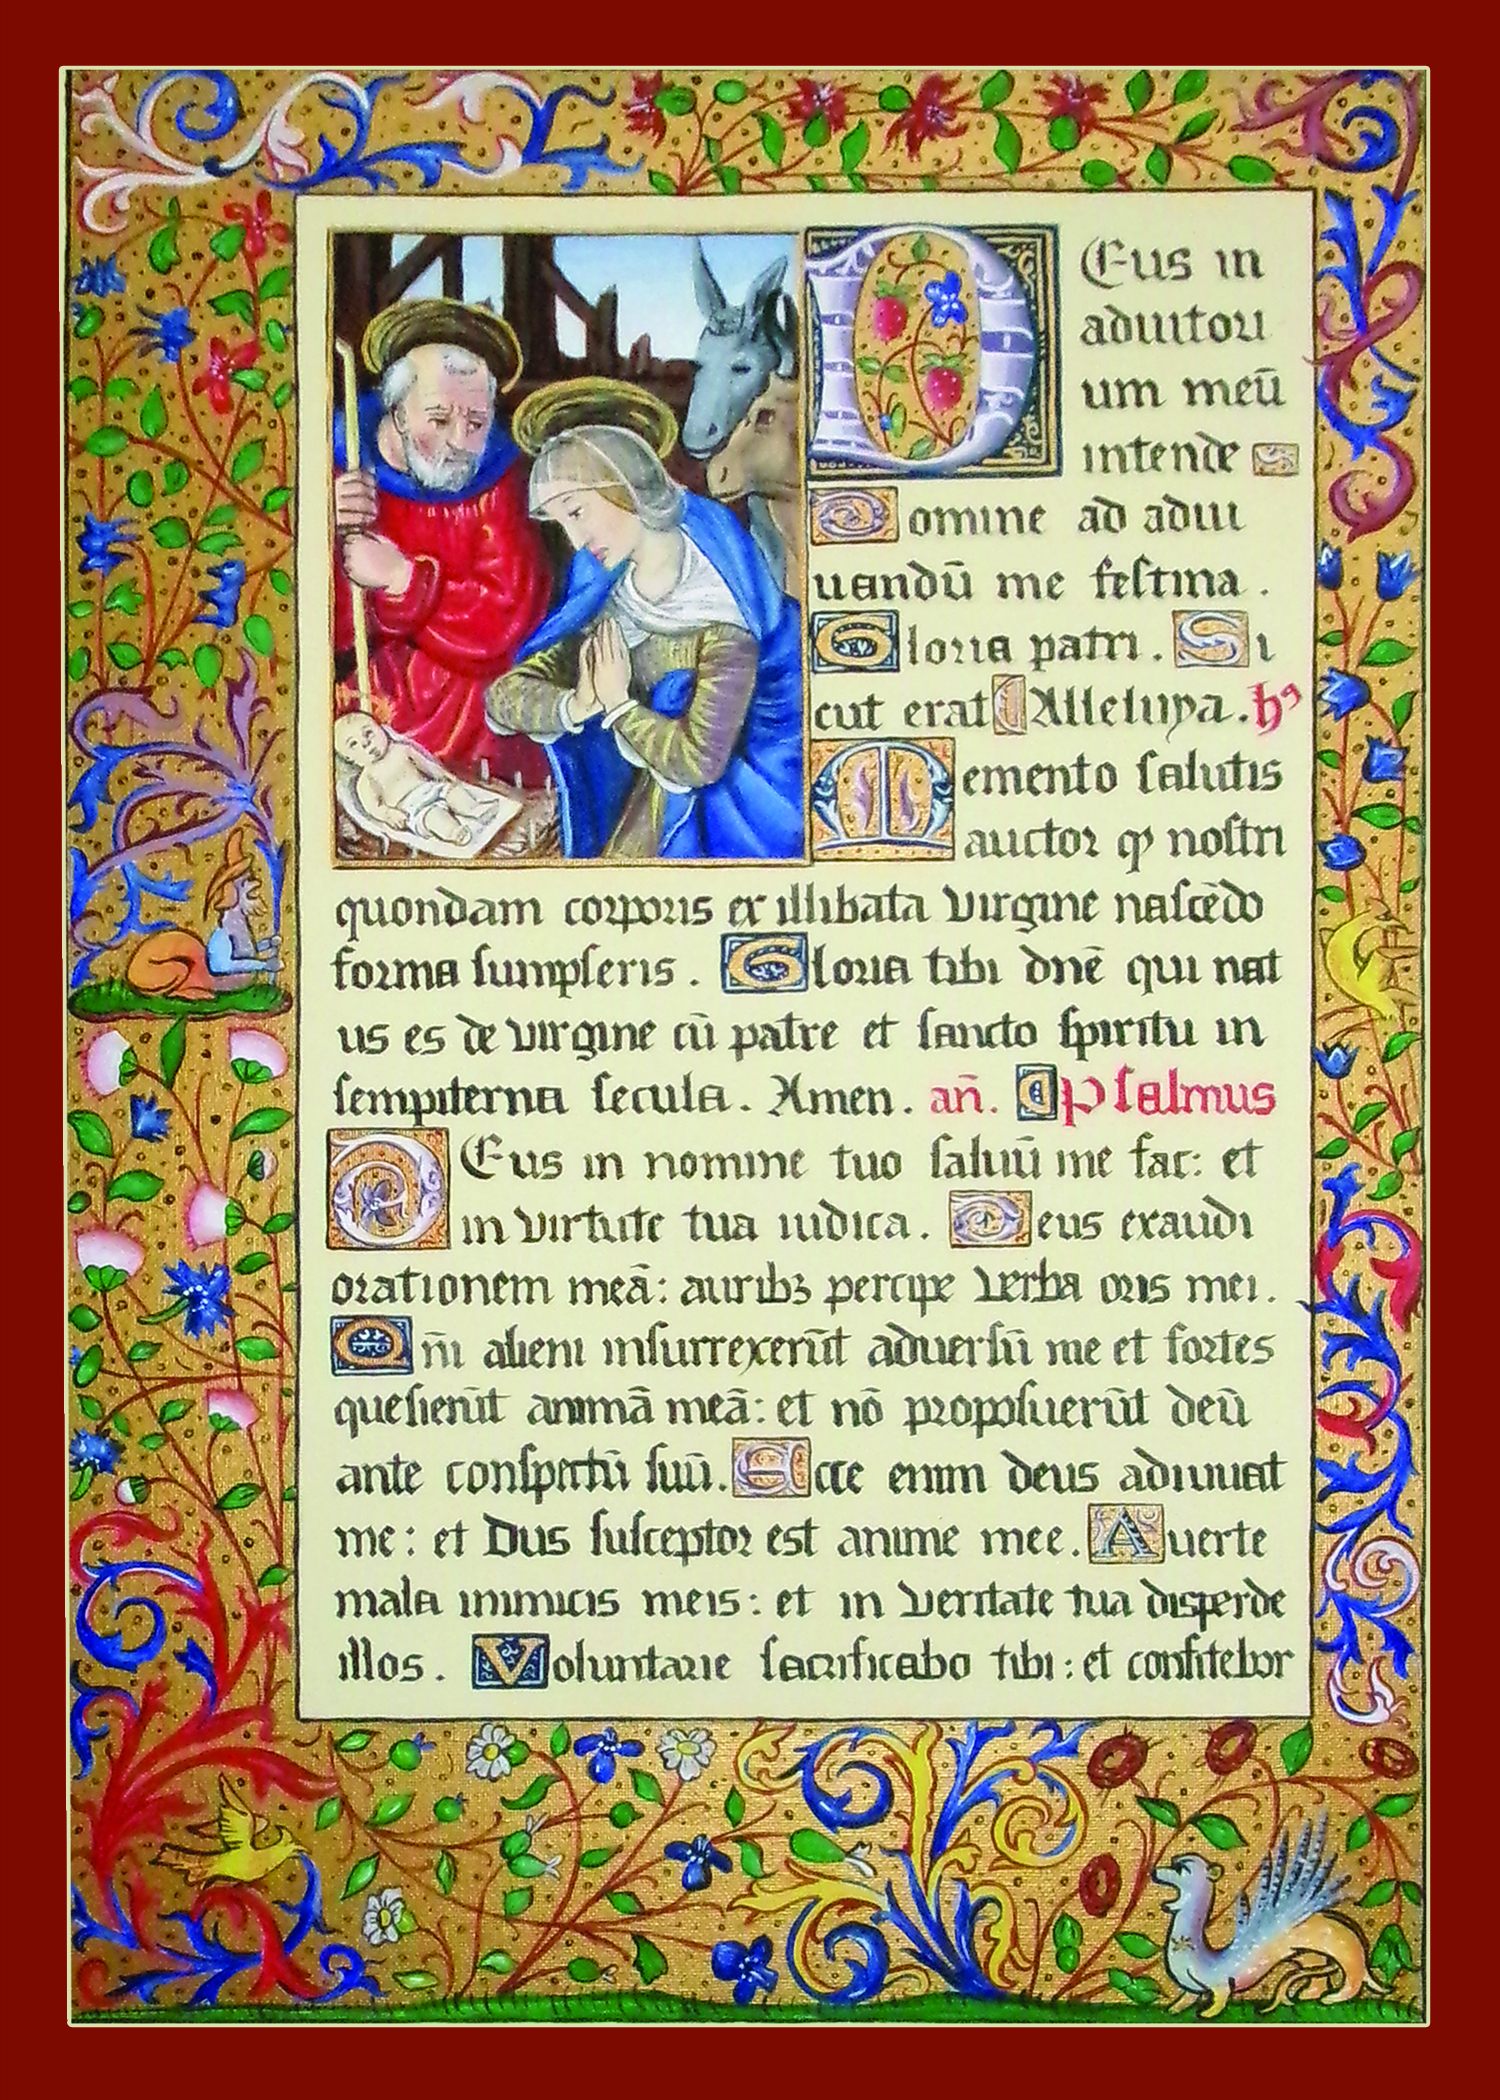 DEus in
adiutori
um meū
intende
Domine ad adiu
uandū me festina .
Gloria patri . Si
cut erat Alleluya . hꝰ
Memento salutis
auctor qp nostri
quondam corporis ex illibata virgine nascēdo
forma sumpseris . Gloria tibi dnē qui nat
us es de virgine cū patre et sancto spiritu in
sempiterna secula . Amen . añ. Psalmus
DEus in nomine tuo saluū me fac: et
in virtute tua iudica . Deus exaudi
orationem meā: auribꝫ percipe verba oris mei .
Qm̄ alieni insurrexerūt aduersū me et fortes
quesierūt animā meā: et nō proposuerūt deū
ante conspectū suū. Ecce enim deus adiuuat
me: et Dus susceptor est anime mee. Auerte
mala inimicis meis: et in veritate tua disperde
illos . Voluntarie sacrificabo tibi: et confitebor